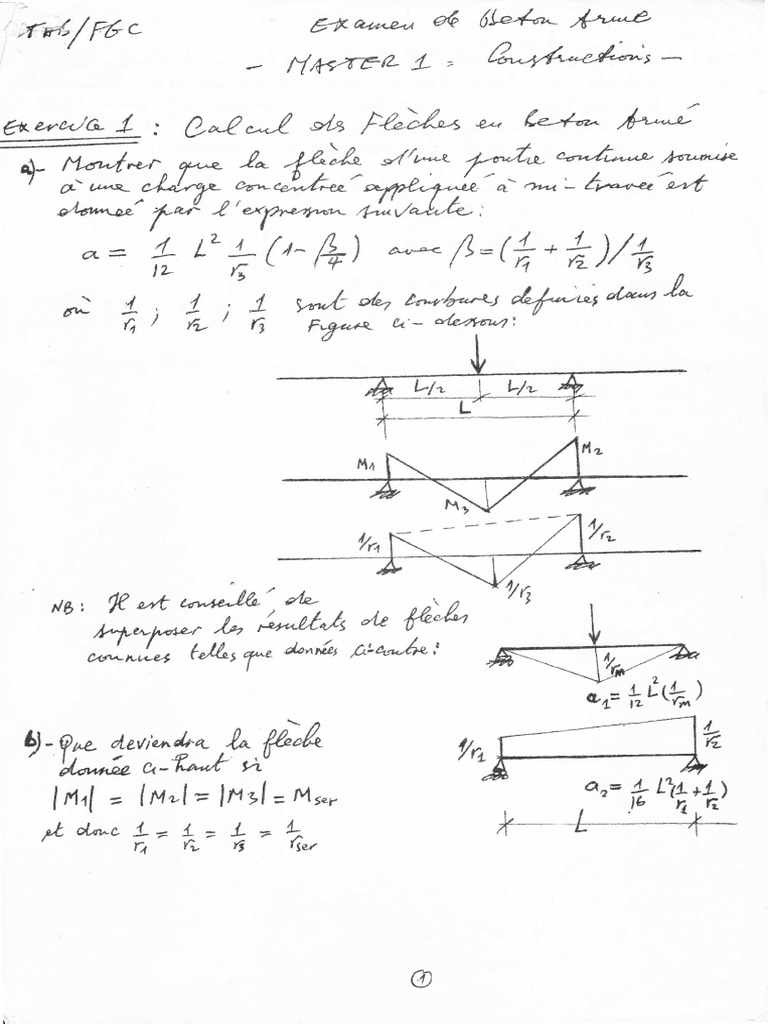 THB/FGC
Examen de Beton Armé
- MASTER 1 = Constructions -
Exercice 1 : Calcul des Flèches en beton Armé
a)- Montrer que la flèche d'une poutre continue soumise
à une charge concentreé appliqueé à mi-traveé est
donneé par l'expression suivante :
a = 1/12 L² 1/r3 (1 - β/4) avec β = (1/r1 + 1/r2)/1/r3
où 1/r1 ; 1/r2 ; 1/r3 sont des courbures definiés dans la
Figure ci-dessous :
L/2 L/2
L
M1 M2
M3
1/r1 1/r2
1/r3
NB : Il est conseillé de
superposer les résultats de flèches
connues telles que données ci-contre :
1/rM
a1 = 1/12 L² (1/rM)
b)- Que deviendra la flèche
donnée ci-haut si
|M1| = |M2| = |M3| = Mser
et donc 1/r1 = 1/r2 = 1/r3 = 1/rser
1/r1 1/r2
a2 = 1/16 L² (1/r1 + 1/r2)
L
1